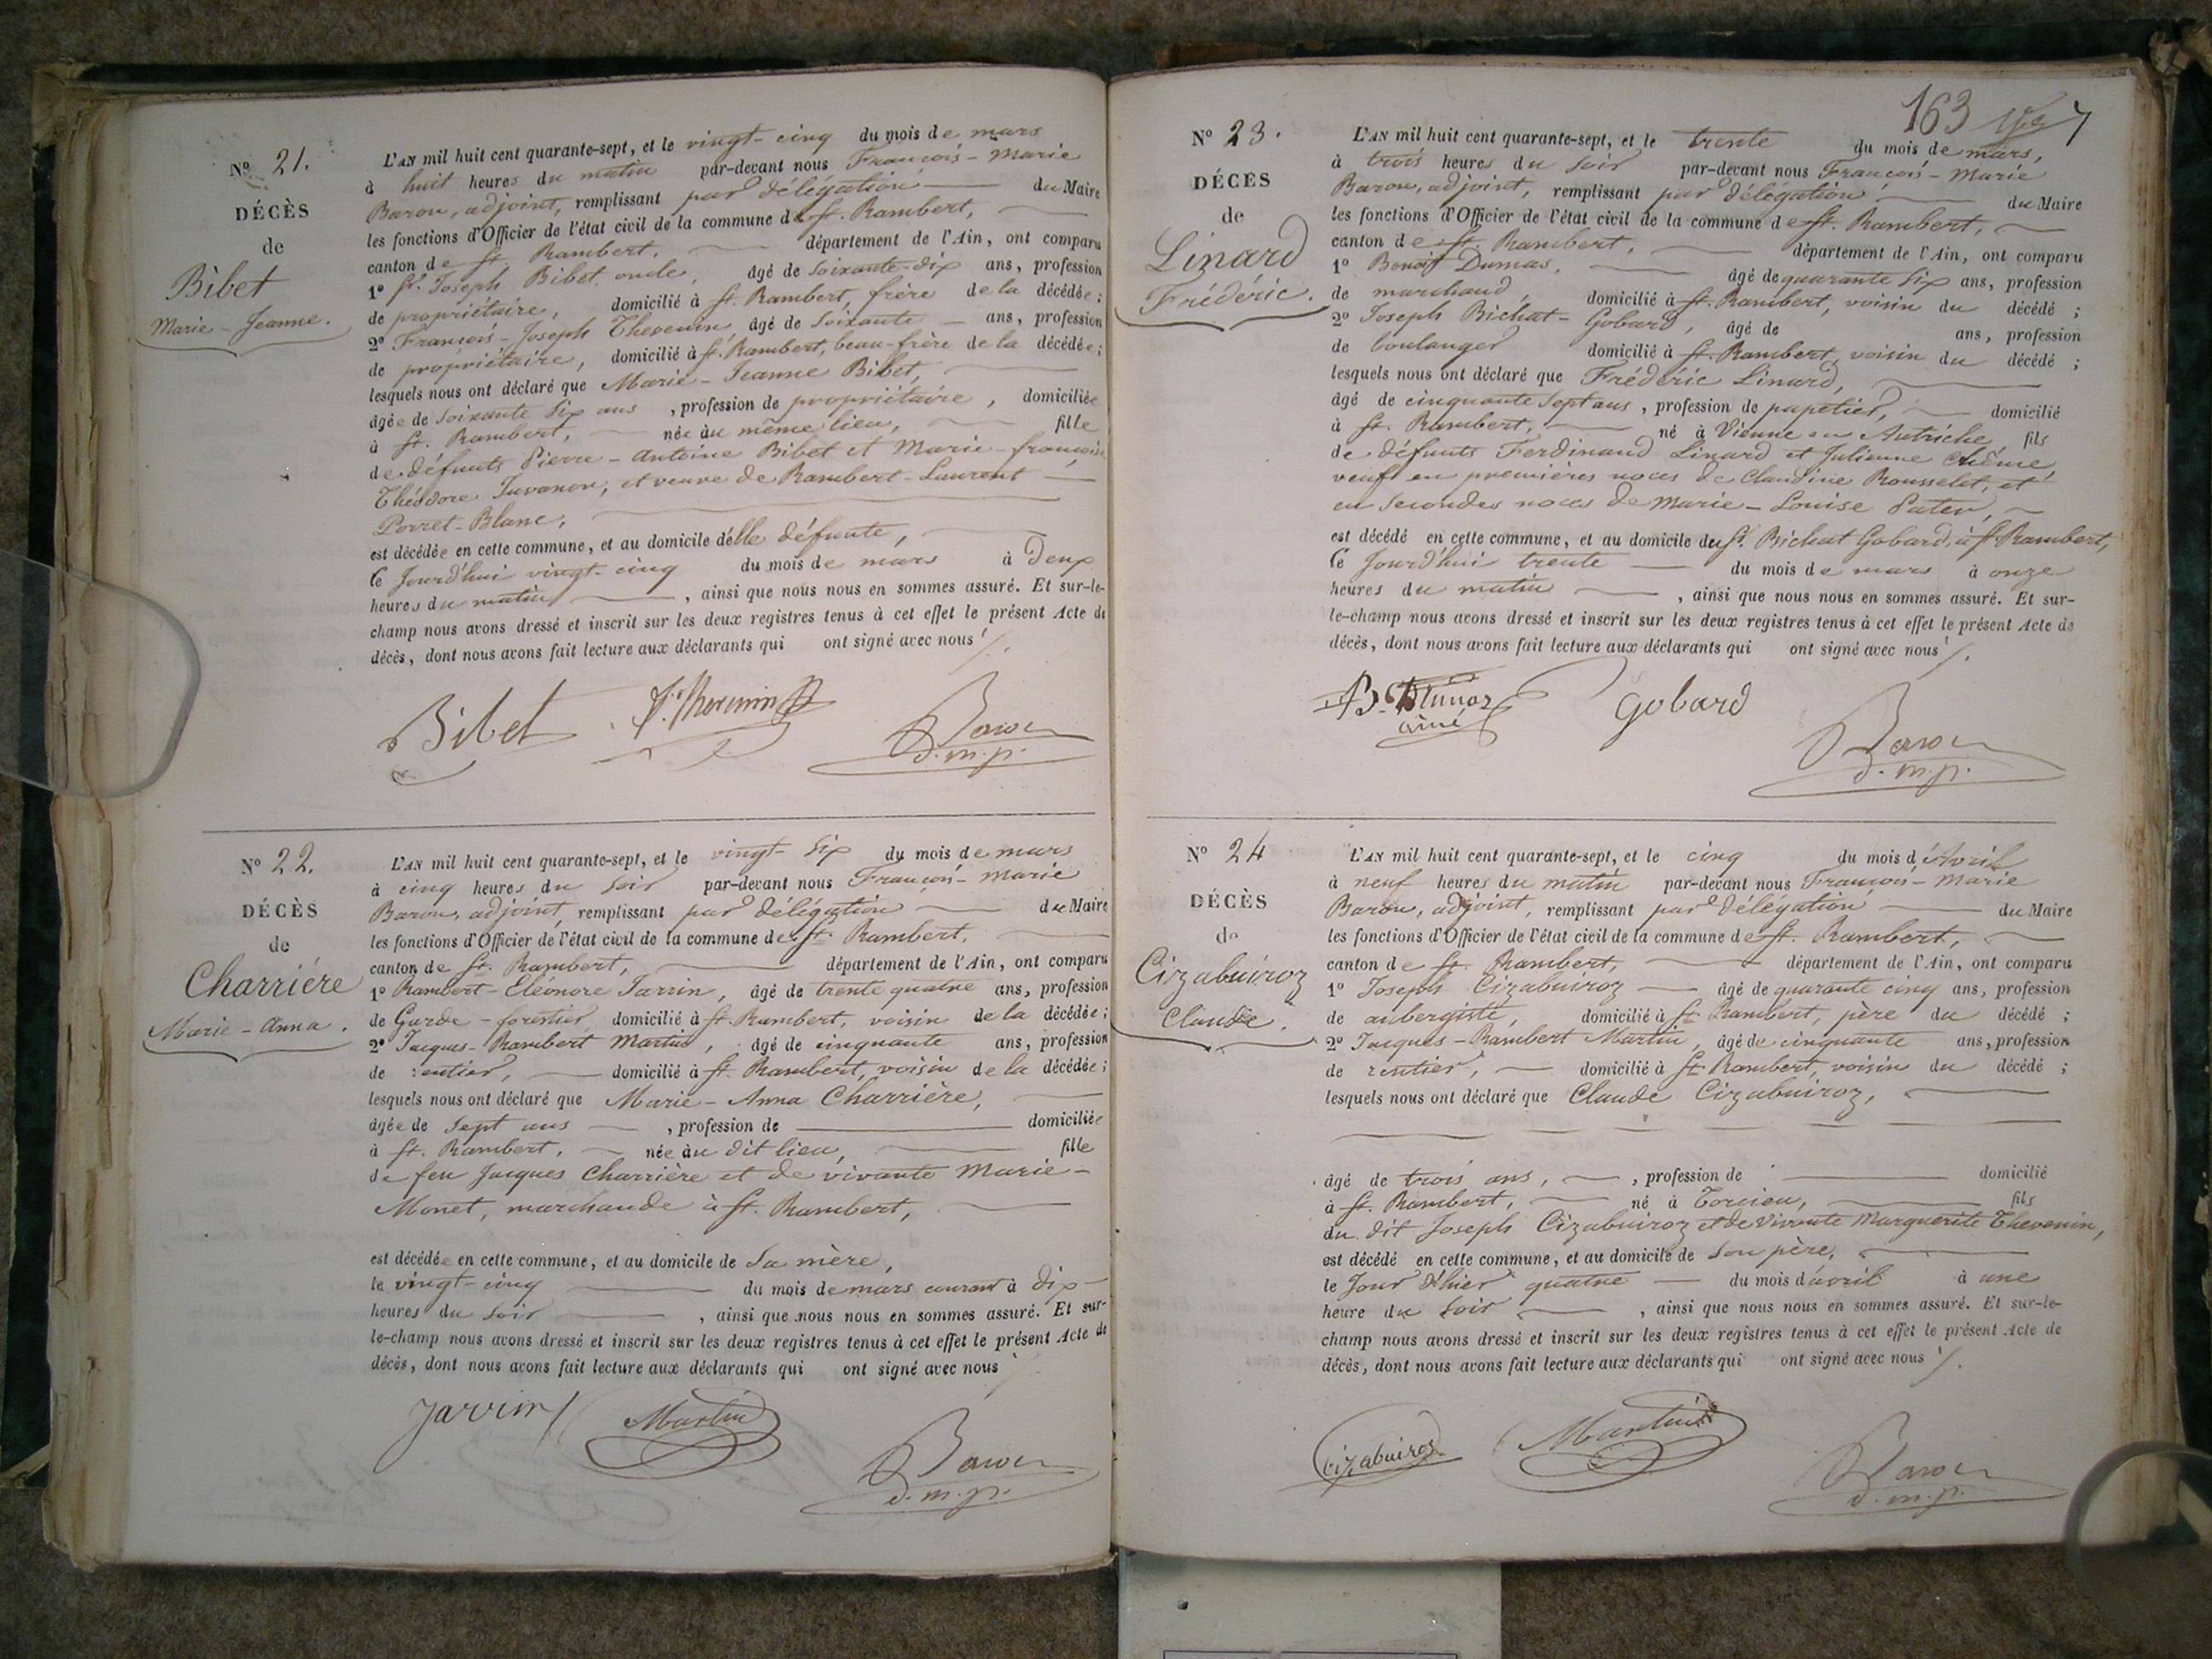 No 21.
DÉCÈS
de
Bibet
Marie-Jeanne.
L'AN mil huit cent quarante-sept, et le vingt-cinq du mois de mars
à huit heures du matin par-devant nous François-Marie
Baron, adjoint, remplissant par délégation du Maire
les fonctions d'Officier de l'état civil de la commune de St. Rambert,
canton de St. Rambert, département de l'Ain, ont comparu
1o Sr. Joseph Bibet oncle, âgé de soixante-dix ans, profession
de propriétaire, domicilié à St. Rambert, frère de la décédée;
2o François-Joseph Thevenin âgé de soixante ans, profession
de propriétaire, domicilié à St. Rambert, beau-frère de la décédée;
lesquels nous ont déclaré que Marie-Jeanne Bibet,
âgée de soixante six ans, profession de propriétaire, domiciliée
à St. Rambert, née au même lieu, fille
de défunts Pierre-Antoine Bibet et Marie-françoise
Théodore Juvanon, et veuve de Rambert-Laurent
Porret-Blanc,
est décédée en cette commune, et au domicile d'elle défunte,
le Jourd'hui vingt-cinq du mois de mars à deux
heures du matin, ainsi que nous nous en sommes assuré. Et sur-le-
champ nous avons dressé et inscrit sur les deux registres tenus à cet effet le présent Acte de
décès, dont nous avons fait lecture aux déclarants qui ont signé avec nous
Bibet
Baron
d.m.p.
No 22.
DÉCÈS
de
Charriére
Marie-Anna.
L'AN mil huit cent quarante-sept, et le vingt-six du mois de mars
à cinq heures du soir par-devant nous François-Marie
Baron, adjoint, remplissant par délégation du Maire
les fonctions d'Officier de l'état civil de la commune de St. Rambert,
canton de St. Rambert, département de l'Ain, ont comparu
1o Rambert-Eléonore Jarrin, âgé de trente quatre ans, profession
de Garde-forestier, domicilié à St. Rambert, voisin de la décédée;
2o Jacques-Rambert Martin, âgé de cinquante ans, profession
de rentier, domicilié à St. Rambert, voisin de la décédée;
lesquels nous ont déclaré que Marie-Anna Charrière,
âgée de sept ans, profession de domiciliée
à St. Rambert, née au dit lieu, fille
de feu Jacques Charrière et de vivante Marie-
Monet, marchande à St. Rambert,
est décédée en cette commune, et au domicile de sa mère,
le vingt-cinq du mois de mars courant à dix
heures du soir, ainsi que nous nous en sommes assuré. Et sur-
le-champ nous avons dressé et inscrit sur les deux registres tenus à cet effet le présent Acte de
décès, dont nous avons fait lecture aux déclarants qui ont signé avec nous
Jarrin
Martin
Baron
d.m.p.
163
7
No 23.
DÉCÈS
de
Linard
Frédéric.
L'AN mil huit cent quarante-sept, et le trente du mois de mars,
à trois heures du soir par-devant nous François-Marie
Baron, adjoint, remplissant par délégation du Maire
les fonctions d'Officier de l'état civil de la commune de St. Rambert,
canton de St. Rambert, département de l'Ain, ont comparu
1o Benoit Dumas, âgé de quarante six ans, profession
de marchand, domicilié à St. Rambert, voisin du décédé;
2o Joseph Bichat-Gobard, âgé de ans, profession
de boulanger domicilié à St. Rambert, voisin du décédé;
lesquels nous ont déclaré que Frédéric Linard,
âgé de cinquante sept ans, profession de papetier, domicilié
à St. Rambert, né à Vienne en Autriche, fils
de défunts Ferdinand Linard et Julienne
veuf en premières noces de Claudine Rousselet, et
en secondes noces de Marie-Louise Pater,
est décédé en cette commune, et au domicile du Sr. Bichat Gobard, à St. Rambert,
le Jourd'hui trente du mois de mars à onze
heures du matin, ainsi que nous nous en sommes assuré. Et sur-
le-champ nous avons dressé et inscrit sur les deux registres tenus à cet effet le présent Acte de
décès, dont nous avons fait lecture aux déclarants qui ont signé avec nous
ainé
Gobard
Baron
d.m.p.
No 24
DÉCÈS
de
Cizabuiroz
Claude.
L'AN mil huit cent quarante-sept, et le cinq du mois d'Avril
à neuf heures du matin par-devant nous François-Marie
Baron, adjoint, remplissant par délégation du Maire
les fonctions d'Officier de l'état civil de la commune de St. Rambert,
canton de St. Rambert, département de l'Ain, ont comparu
1o Joseph Cizabuiroz âgé de quarante cinq ans, profession
de aubergiste, domicilié à St. Rambert, père du décédé;
2o Jacques-Rambert Martin, âgé de cinquante ans, profession
de rentier, domicilié à St. Rambert, voisin du décédé;
lesquels nous ont déclaré que Claude Cizabuiroz,
âgé de trois ans, profession de domicilié
à St. Rambert, né à Torcieu, fils
du dit Joseph Cizabuiroz et de vivante Marguerite Thevenin,
est décédé en cette commune, et au domicile de son père,
le Jour d'hier quatre du mois d'avril à une
heure du soir, ainsi que nous nous en sommes assuré. Et sur-le-
champ nous avons dressé et inscrit sur les deux registres tenus à cet effet le présent Acte de
décès, dont nous avons fait lecture aux déclarants qui ont signé avec nous
Cizabuiroz
Martin
Baron
d.m.p.